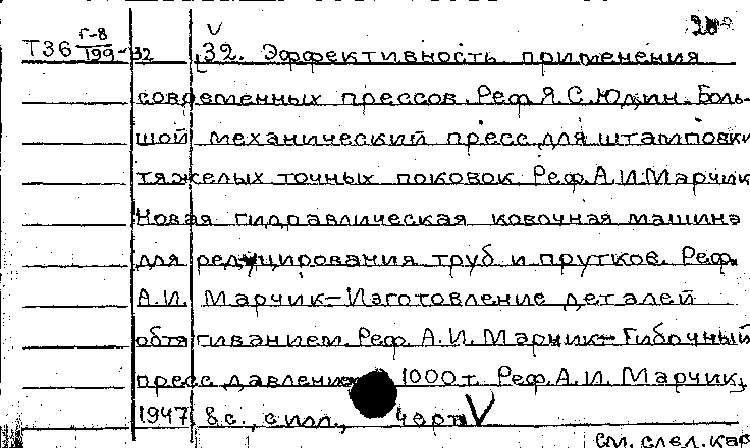 20
Т36 Г-8/199-32 32. Эффективность применения
современных прессов. Реф. Я.С. Юдин. Боль-
шой механический пресс для штамповки
тяжелых точных поковок. Реф. А.И. Марчик
Новая гидравлическая ковочная машина
для редуцирования труб и прутков. Реф.
А.И. Марчик – Изготовление деталей
обтягиванием. Реф. А.И. Марчик – Гибочный
пресс давлением 1000т. Реф. А.И. Марчик,
1947 8с., с илл., черт. V
см. след. кар